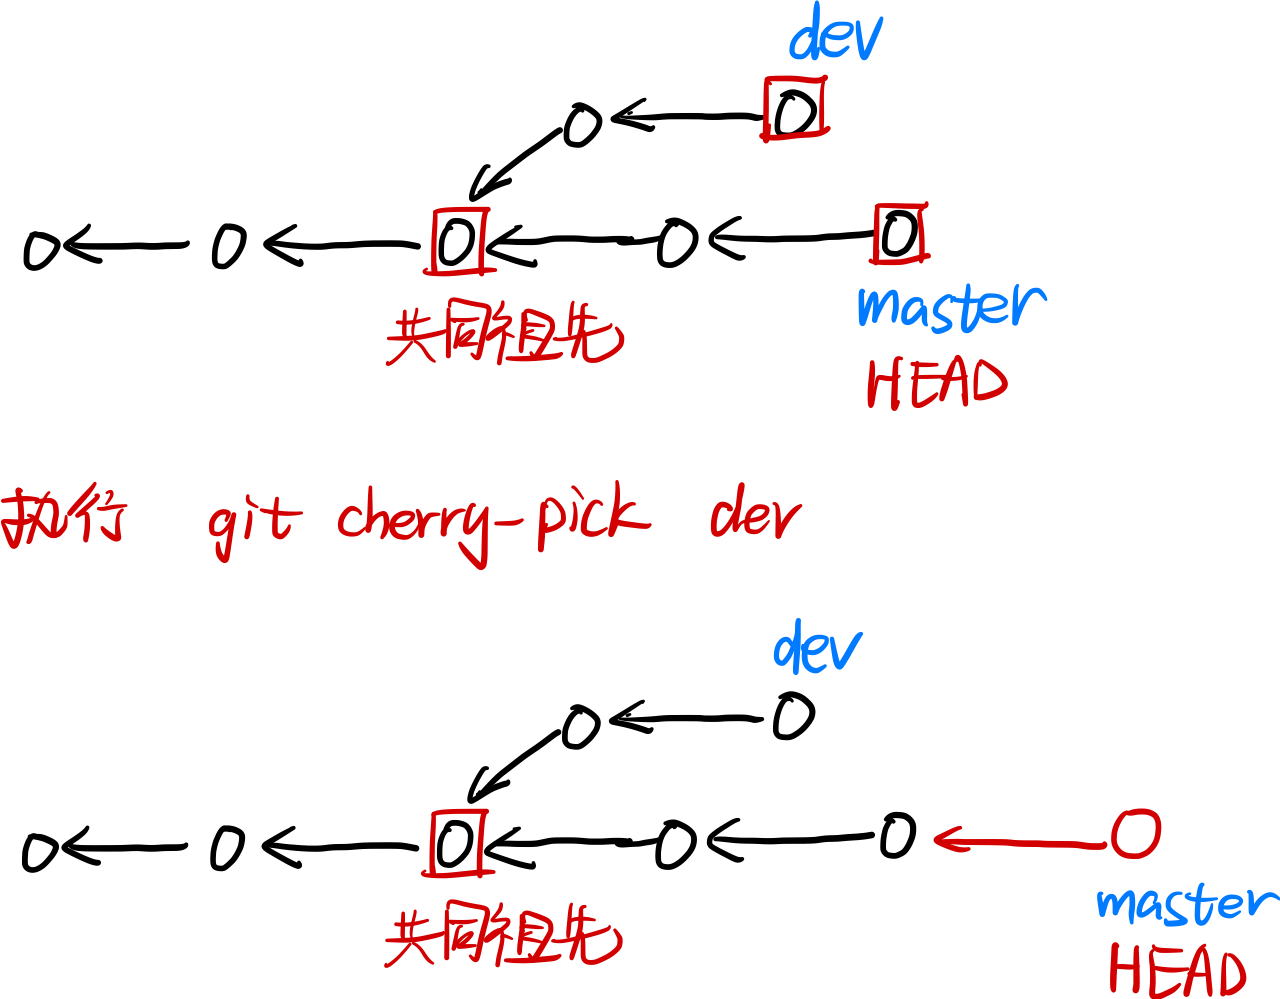 dev
共同祖先
master
HEAD
执行 git cherry-pick dev
dev
共同祖先
master
HEAD